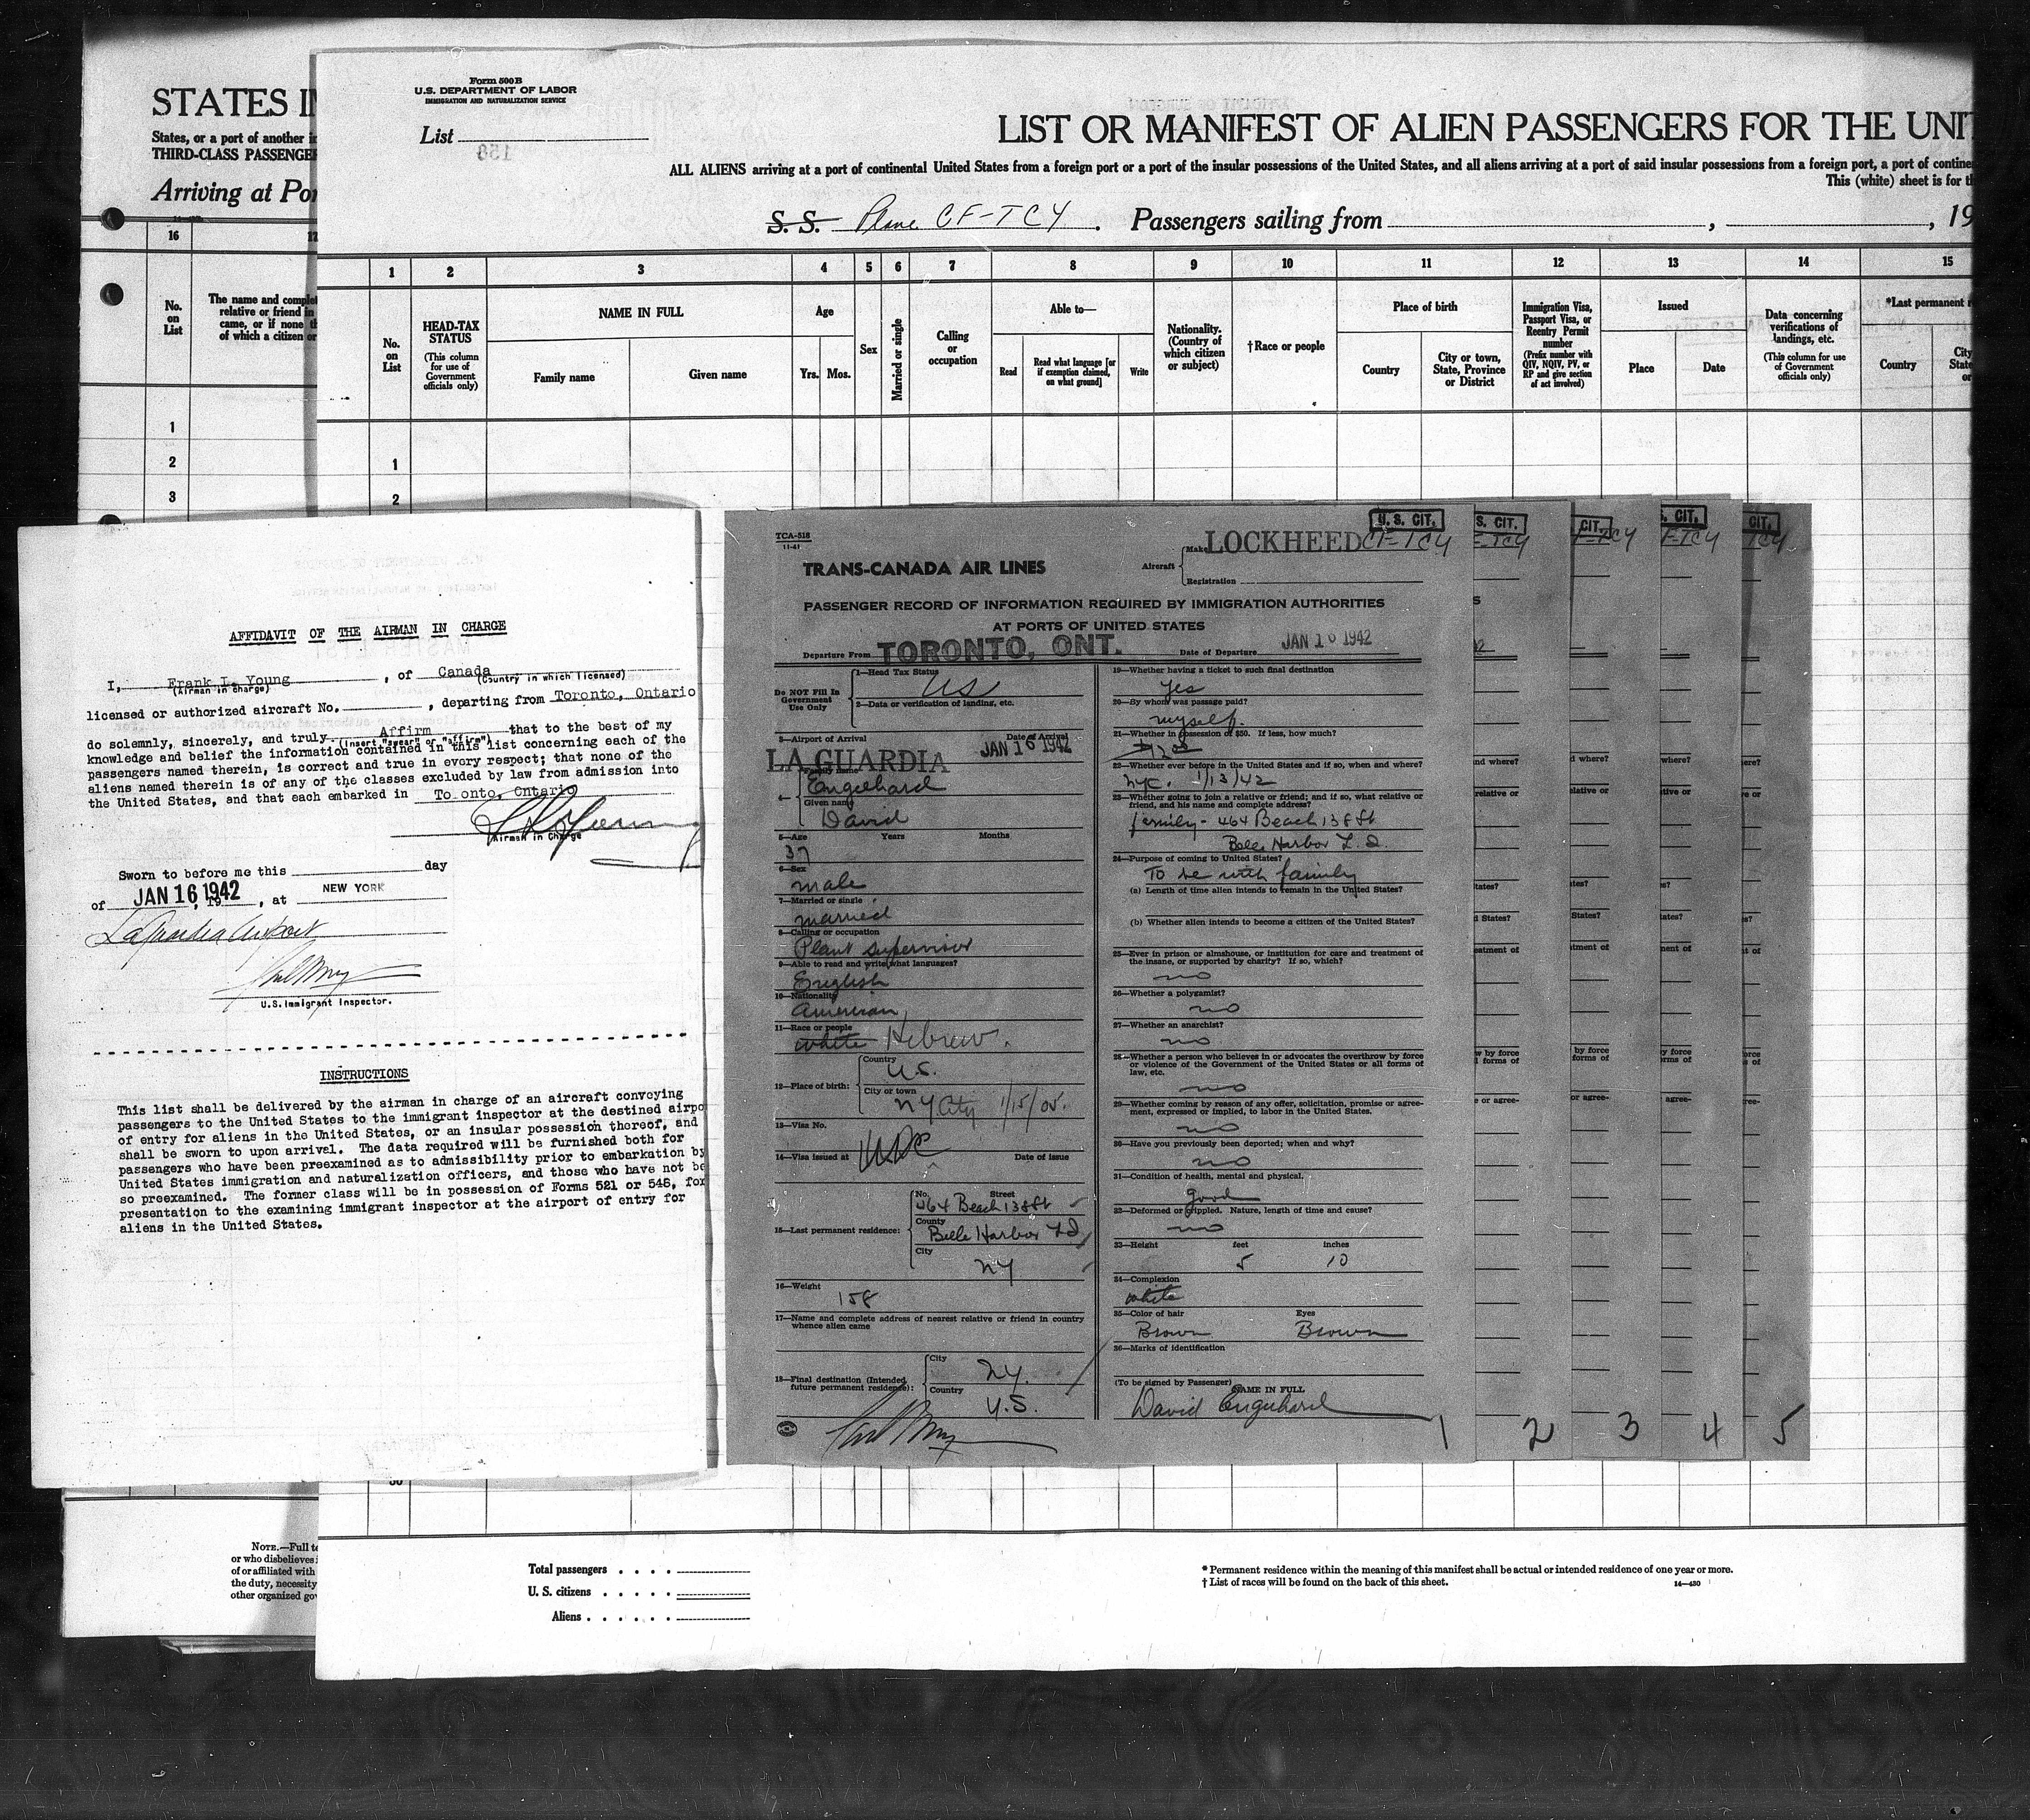 STATES I
States, or a port of another in
THIRD-CLASS PASSENGER
Arriving at Por
16
No. on List
The name and complet
relative or friend in
came, or if none th
of which a citizen or
1
2
3
Form 500 B
U.S. DEPARTMENT OF LABOR
IMMIGRATION AND NATURALIZATION SERVICE
List
158
LIST OR MANIFEST OF ALIEN PASSENGERS FOR THE UNIT
ALL ALIENS arriving at a port of continental United States from a foreign port or a port of the insular possessions of the United States, and all aliens arriving at a port of said insular possessions from a foreign port, a port of contine
This (white) sheet is for th
S. S. Plane CF-TCY. Passengers sailing from , , 19
1 2 3 4 5 6 7 8 9 10 11 12 13 14 15
No. on List
HEAD-TAX STATUS
(This column for use of Government officials only)
NAME IN FULL
Family name
Given name
Age
Yrs. Mos.
Sex
Married or single
Calling or occupation
Able to—
Read
Read what language [or if exemption claimed, on what ground]
Write
Nationality. (Country of which citizen or subject)
†Race or people
Place of birth
Country
City or town, State, Province or District
Immigration Visa, Passport Visa, or Reentry Permit number
(Prefix number with QIV, NQIV, PV, or RP and give section of act involved)
Issued
Place
Date
Data concerning verifications of landings, etc.
(This column for use of Government officials only)
*Last permanent r
Country
City
State
or
1
2
AFFIDAVIT OF THE AIRMAN IN CHARGE
I, Frank I. Young, of Canada
(Airman in charge) (Country in which licensed)
licensed or authorized aircraft No. , departing from Toronto, Ontario
do solemnly, sincerely, and truly Affirm that to the best of my
(Insert "swear" or "affirm")
knowledge and belief the information contained in this list concerning each of the
passengers named therein, is correct and true in every respect; that none of the
aliens named therein is of any of the classes excluded by law from admission into
the United States, and that each embarked in To onto, Ontario
(Airman in Charge
Sworn to before me this day
of JAN 16 1942, 19 , at NEW YORK
LaGuardia Airport
U.S. Immigrant Inspector.
INSTRUCTIONS
This list shall be delivered by the airman in charge of an aircraft conveying
passengers to the United States to the immigrant inspector at the destined airpo
of entry for aliens in the United States, or an insular possession thereof, and
shall be sworn to upon arrival. The data required will be furnished both for
passengers who have been preexamined as to admissibility prior to embarkation by
United States immigration and naturalization officers, and those who have not be
so preexamined. The former class will be in possession of Forms 521 or 546, for
presentation to the examining immigrant inspector at the airport of entry for
aliens in the United States.
TCA-518
11-41
TRANS-CANADA AIR LINES
Aircraft
Make LOCKHEED CF-TCY
Registration
U. S. CIT.
PASSENGER RECORD OF INFORMATION REQUIRED BY IMMIGRATION AUTHORITIES
AT PORTS OF UNITED STATES
Departure From TORONTO, ONT. Date of Departure JAN 16 1942
Do NOT Fill In
Government
Use Only
1—Head Tax Status
US
2—Data or verification of landing, etc.
3—Airport of Arrival Date of Arrival
LA GUARDIA JAN 16 1942
4—
Family name
Engelhard
Given name
David
5—Age Years Months
37
6—Sex
male
7—Married or single
married
8—Calling or occupation
Plant supervisor
9—Able to read and write, what languages?
English
10—Nationality
American
11—Race or people
white Hebrew.
12—Place of birth:
Country
U.S.
City or town
NY City 1/15/05.
13—Visa No.
14—Visa issued at Date of issue
15—Last permanent residence:
No. Street
464 Beach 138 St
County
Belle Harbor LI
City
NY
16—Weight
158
17—Name and complete address of nearest relative or friend in country
whence alien came
18—Final destination (Intended
future permanent residence):
City
NY.
Country
U.S.
19—Whether having a ticket to such final destination
Yes
20—By whom was passage paid?
myself.
21—Whether in possession of $50. If less, how much?
22—Whether ever before in the United States and if so, when and where?
NYC. 1/13/42
23—Whether going to join a relative or friend; and if so, what relative or
friend, and his name and complete address?
family - 464 Beach 138 St
Belle Harbor L.I.
24—Purpose of coming to United States?
To be with family
(a) Length of time alien intends to remain in the United States?
(b) Whether alien intends to become a citizen of the United States?
25—Ever in prison or almshouse, or institution for care and treatment of
the insane, or supported by charity? If so, which?
no
26—Whether a polygamist?
no
27—Whether an anarchist?
no
28—Whether a person who believes in or advocates the overthrow by force
or violence of the Government of the United States or all forms of
law, etc.
no
29—Whether coming by reason of any offer, solicitation, promise or agree-
ment, expressed or implied, to labor in the United States.
no
30—Have you previously been deported; when and why?
no
31—Condition of health, mental and physical.
good
32—Deformed or crippled. Nature, length of time and cause?
no
33—Height feet inches
5 10
34—Complexion
white
35—Color of hair Eyes
Brown Brown
36—Marks of identification
(To be signed by Passenger)
NAME IN FULL
David Engelhard
1 2 3 4 5
30
NOTE.—Full te
or who disbelieves i
of or affiliated with
the duty, necessity
other organized gov
Total passengers
U. S. citizens
Aliens
* Permanent residence within the meaning of this manifest shall be actual or intended residence of one year or more.
† List of races will be found on the back of this sheet.
14—430